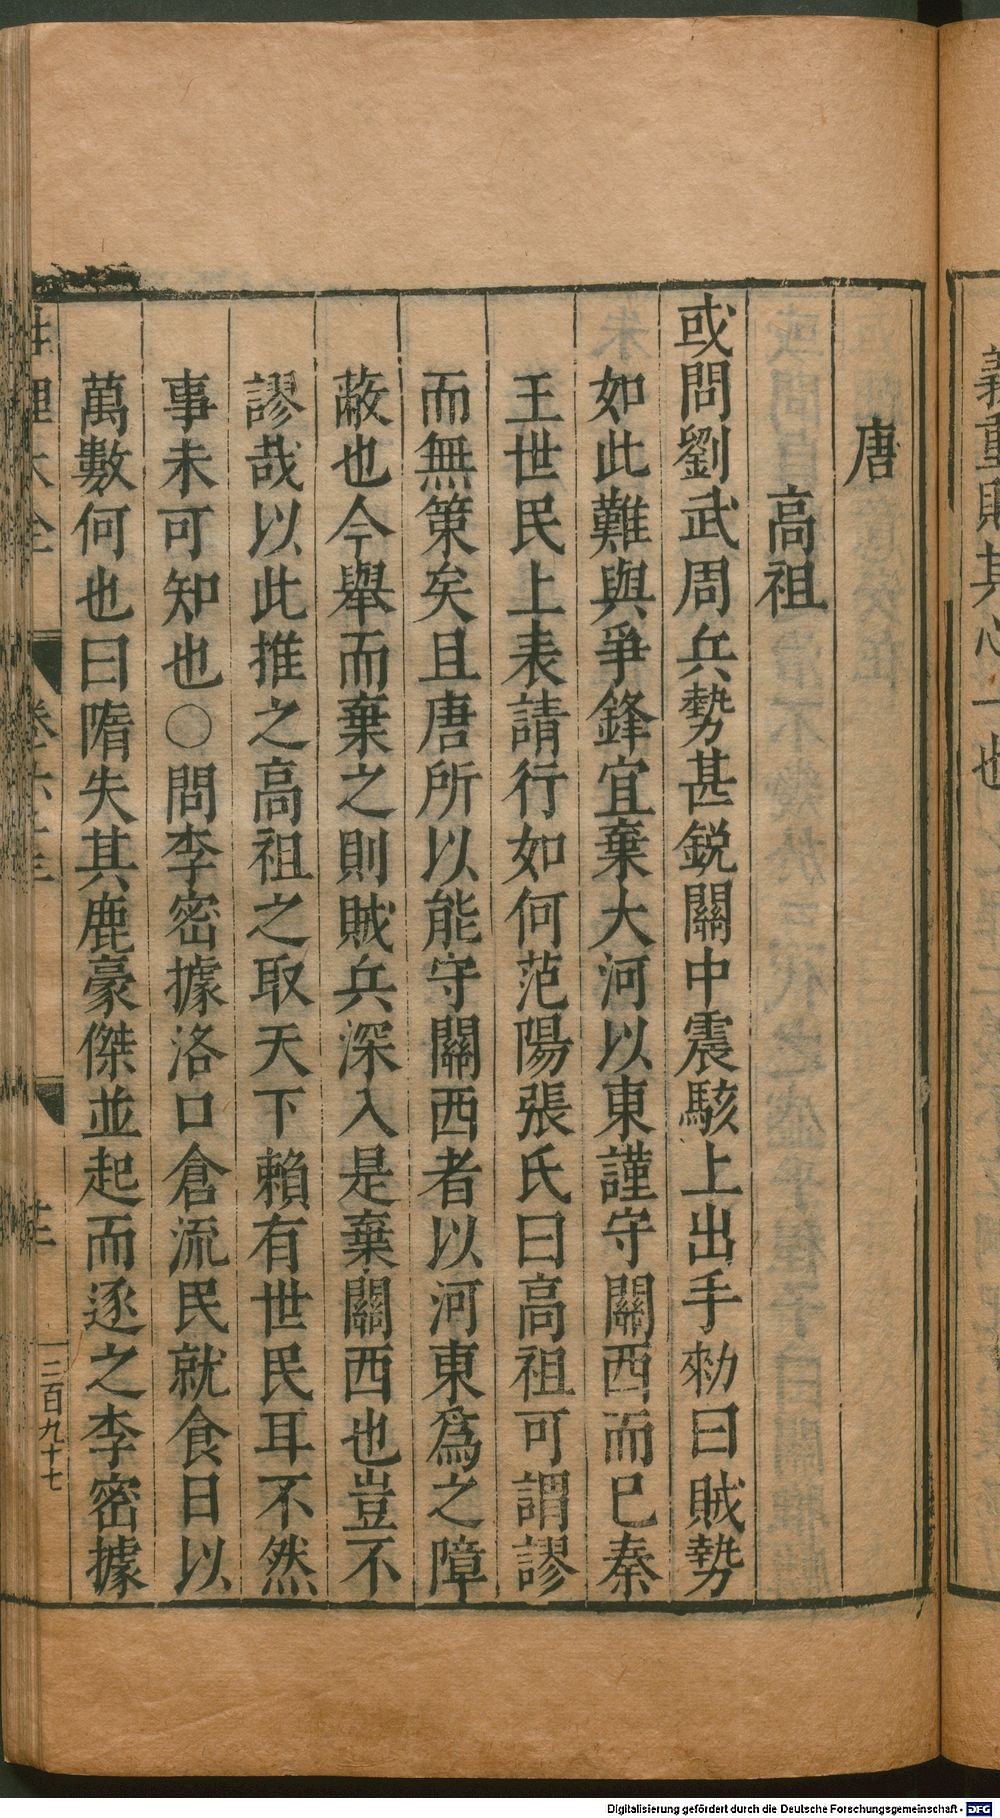 義重則其心一也
唐
高祖
或問劉武周兵勢甚銳關中震駭上出手勑曰賊勢
如此難與爭鋒宜棄大河以東謹守關西而已秦
王世民上表請行如何范陽張氏曰高祖可謂謬
而無策矣且唐所以能守關西者以河東爲之障
蔽也今舉而棄之則賊兵深入是棄關西也豈不
謬哉以此推之高祖之取天下賴有世民耳不然
事未可知也○問李密據洛口倉流民就食日以
萬數何也曰隋失其鹿豪傑並起而逐之李密據
性理大全
卷六十三
三百九十七
Digitalisierung gefördert durch die Deutsche Forschungsgemeinschaft - DFG